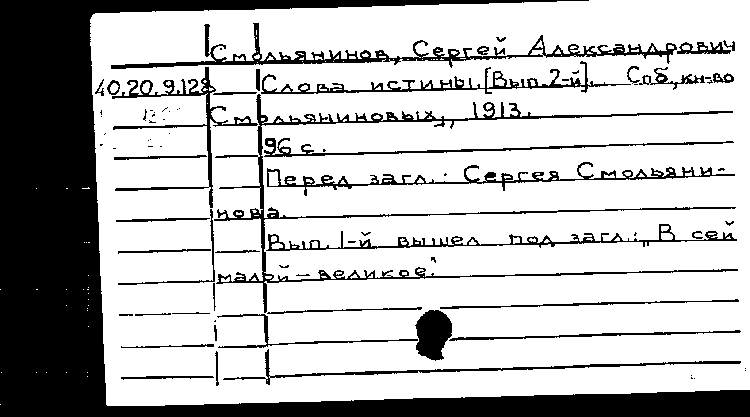 Смольянинов, Сергей Александрович
40.20.9.128 Слова истины. [Вып. 2-й]. Спб, кн-во
Смольяниновых, 1913.
96 с.
Перед загл.: Сергея Смольяни-
нова.
Вып. 1-й вышел под загл.: „В сей
малой – великое."